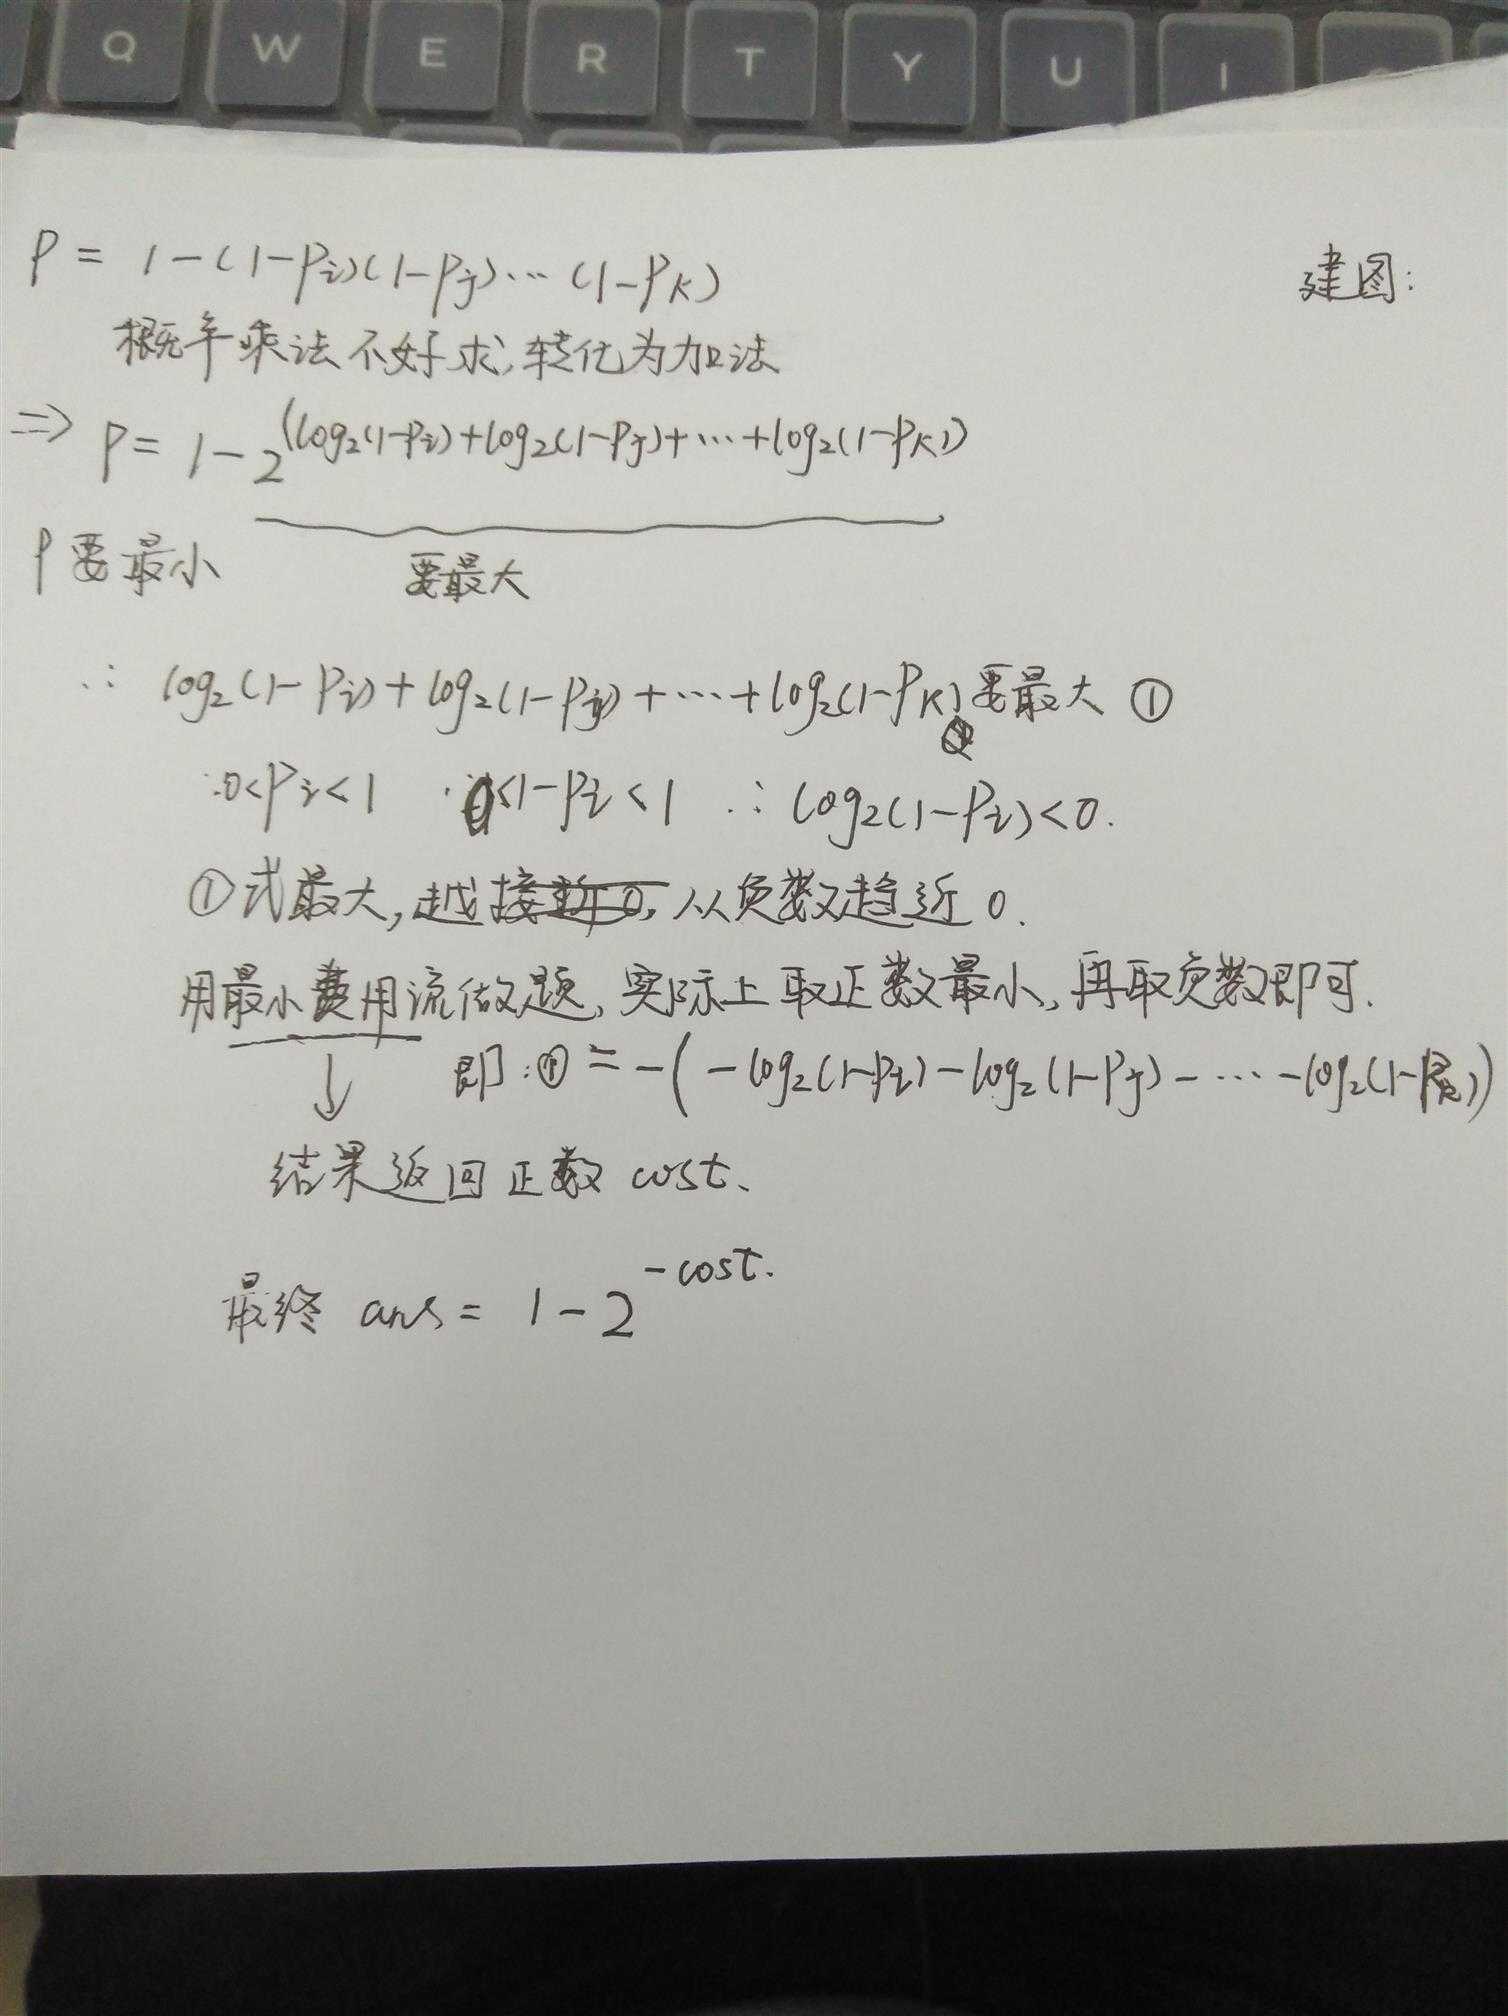 Q W E R T Y U I
P = 1-(1-Pi)(1-Pj)…(1-Pk)
建图:
概率乘法不好求,转化为加法
=> P = 1-2^(log₂(1-Pi)+log₂(1-Pj)+…+log₂(1-Pk))
P要最小 要最大
∴ log₂(1-Pi)+log₂(1-Pj)+…+log₂(1-Pk)要最大 ①
∵0<Pi<1 ∴0<1-Pi<1 ∴log₂(1-Pi)<0.
①式最大,越接近0,从负数趋近0.
用最小费用流做题,实际上取正数最小,再取负数即可.
↓ 即:①=-(-log₂(1-Pi)-log₂(1-Pj)-…-log₂(1-Pk))
结果返回正数cost、
最终 ans = 1-2^-cost.